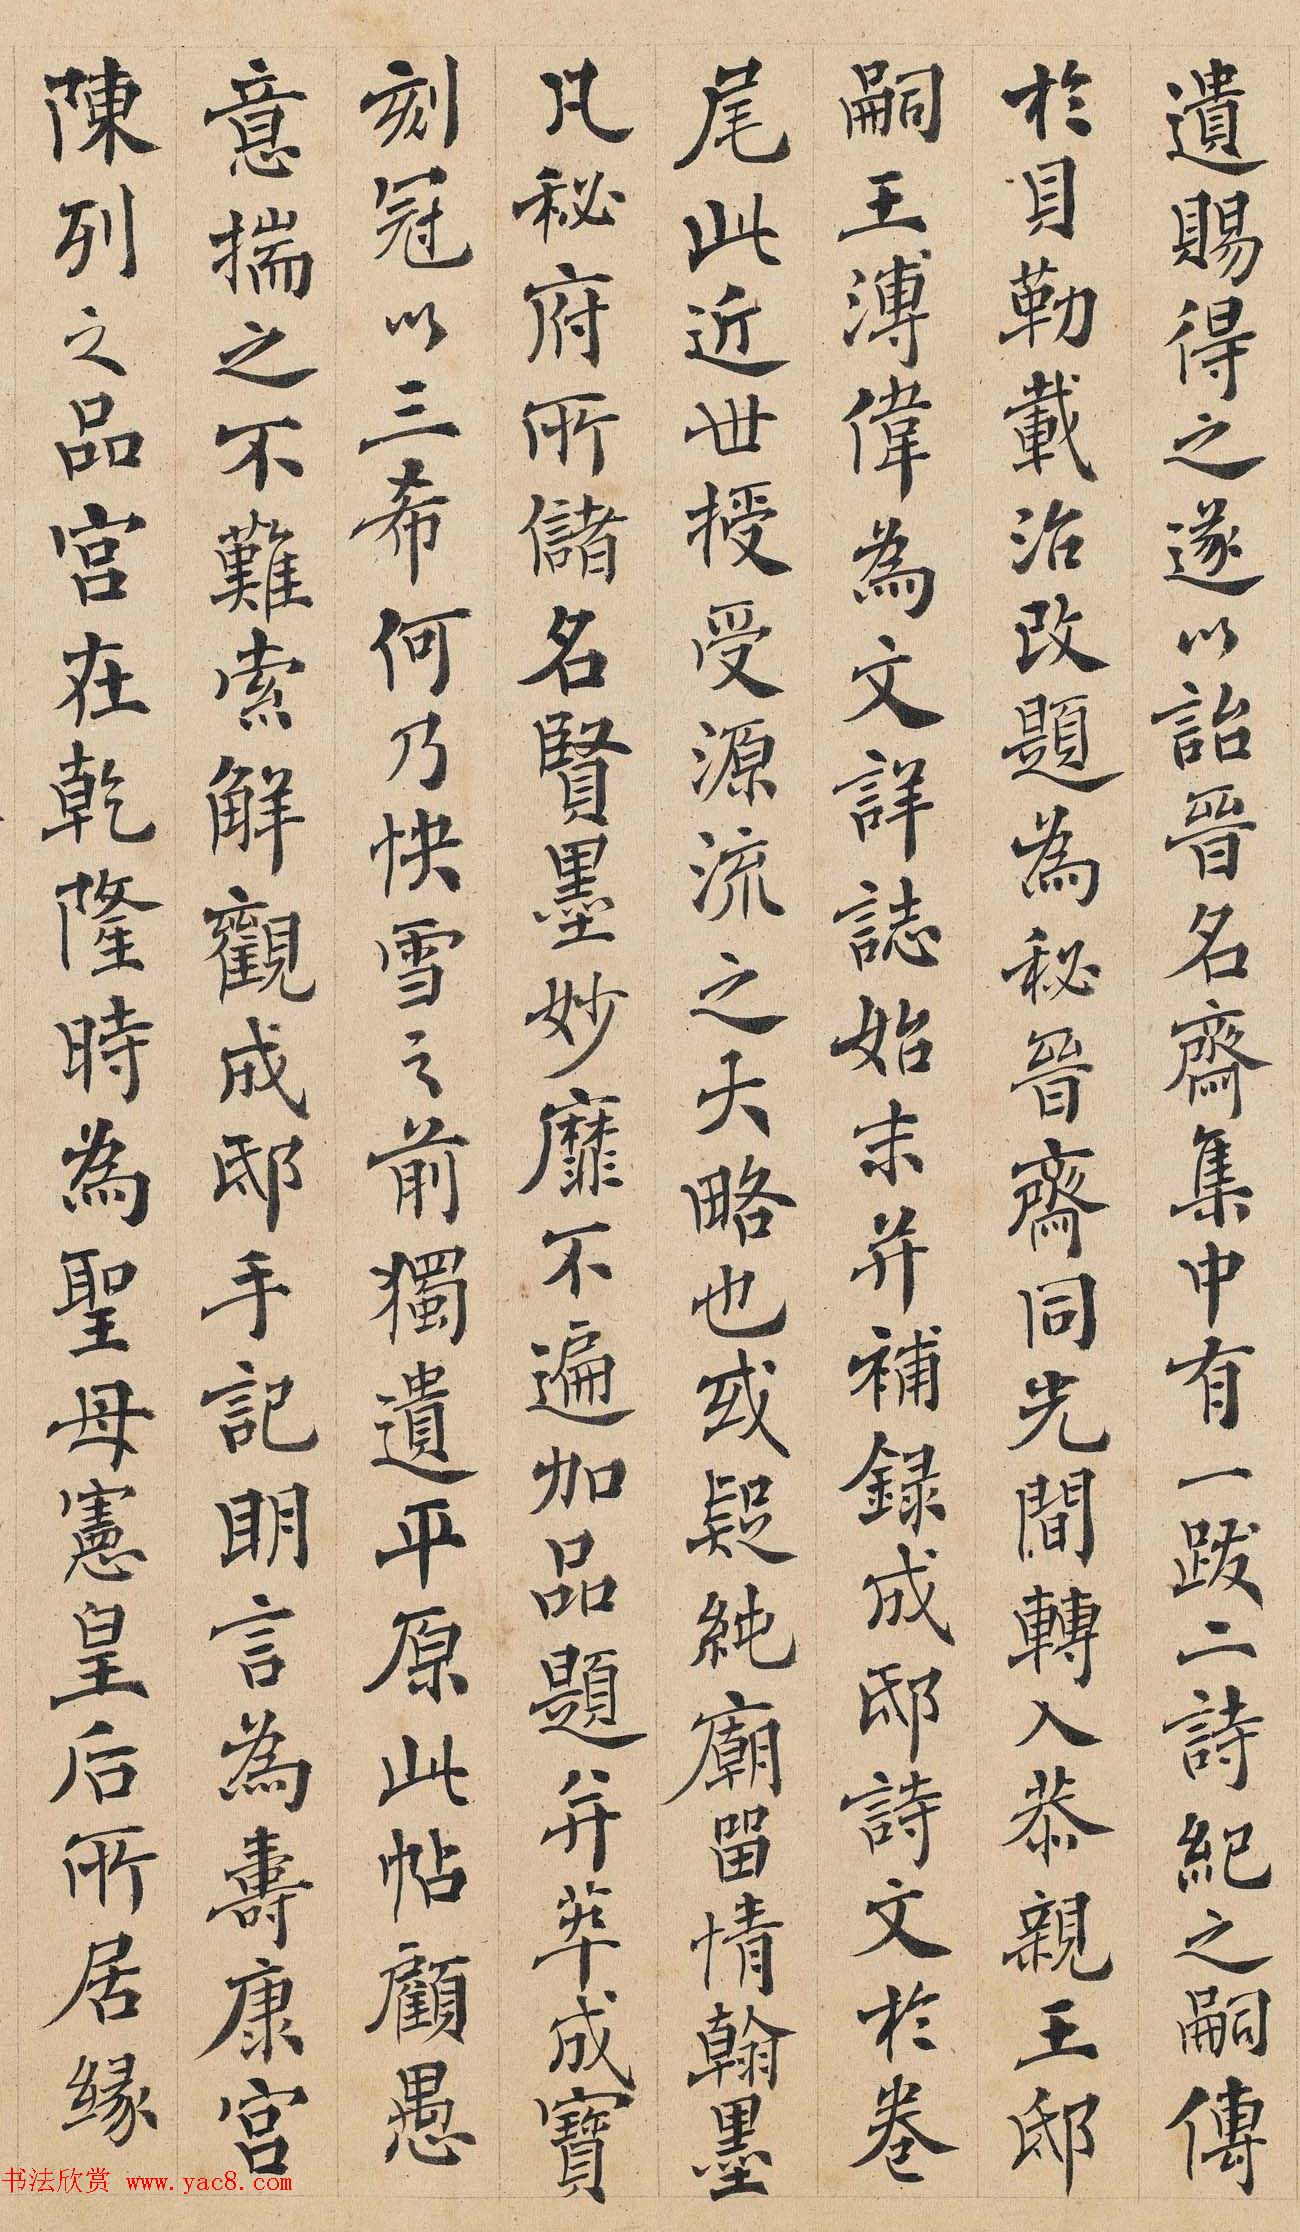 遺賜得之遂以詒晉名齋集中有一跋二詩紀之嗣傳
於貝勒載治改題為秘晉齋同光間轉入恭親王邸
嗣王溥偉為文詳誌始末并補錄成邸詩文於卷
尾此近世授受源流之大略也或疑純廟留情翰墨
凡秘府所儲名賢墨妙靡不遍加品題并萃成寶
刻冠以三希何乃快雪之前獨遺平原此帖顧愚
意揣之不難索解觀成邸手記明言為壽康宮
陳列之品宮在乾隆時為聖母憲皇后所居緣
书法欣赏 www.yac8.com